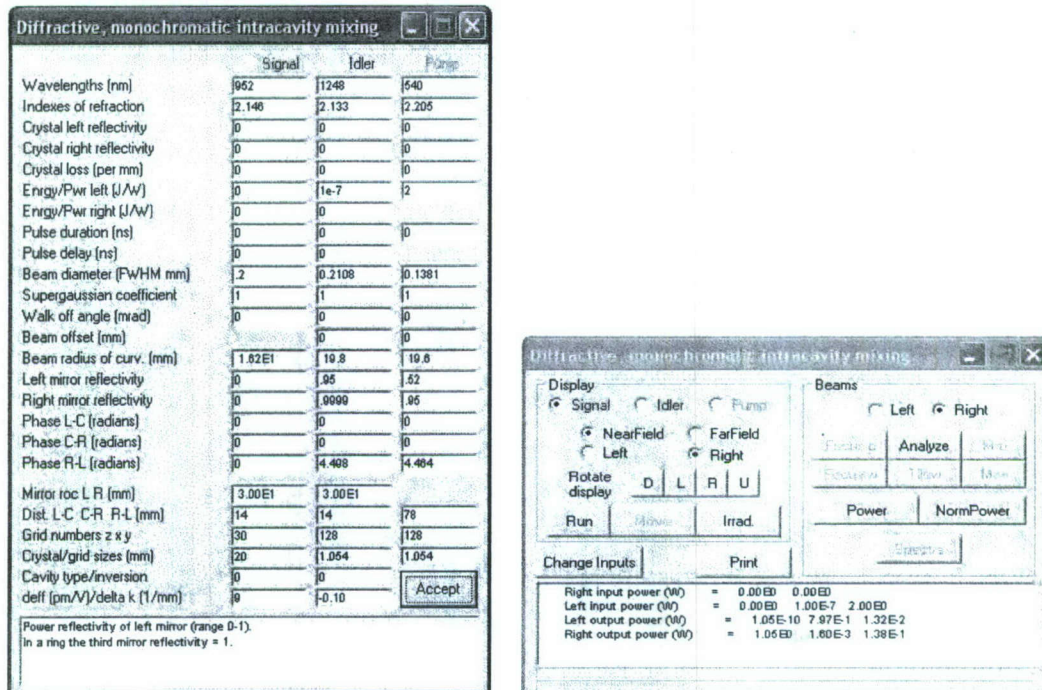 Diffractive, monochromatic intracavity mixing
Signal Idler Pump
Wavelengths (nm) 952 1248 540
Indexes of refraction 2.146 2.133 2.205
Crystal left reflectivity 0 0 0
Crystal right reflectivity 0 0 0
Crystal loss (per mm) 0 0 0
Enrgy/Pwr left (J/W) 0 1e-7 2
Enrgy/Pwr right (J/W) 0 0
Pulse duration (ns) 0 0 0
Pulse delay (ns) 0 0
Beam diameter (FWHM mm) .2 0.2108 0.1381
Supergaussian coefficient 1 1 1
Walk off angle (mrad) 0 0 0
Beam offset (mm) 0 0
Beam radius of curv. (mm) 1.62E1 19.8 19.6
Left mirror reflectivity 0 .95 .52
Right mirror reflectivity 0 .9999 .95
Phase L-C (radians) 0 0 0
Phase C-R (radians) 0 0 0
Phase R-L (radians) 0 4.408 4.464
Mirror roc L R (mm) 3.00E1 3.00E1
Dist. L-C C-R R-L (mm) 14 14 78
Grid numbers z x y 30 128 128
Crystal/grid sizes (mm) 20 1.054 1.054
Cavity type/inversion 0 0
deff (pm/V)/delta k (1/mm) 9 -0.10
Accept
Power reflectivity of left mirror (range 0-1).
In a ring the third mirror reflectivity = 1.
Diffractive, monochromatic intracavity mixing
Display
Signal Idler Pump
NearField FarField
Left Right
Rotate display D L R U
Run Movie Irrad.
Change Inputs Print
Beams
Left Right
Analyze
Power NormPower
Spectra
Right input power (W) = 0.00E0 0.00E0
Left input power (W) = 0.00E0 1.00E-7 2.00E0
Left output power (W) = 1.05E-10 7.97E-1 1.32E-2
Right output power (W) = 1.05E0 1.60E-3 1.38E-1